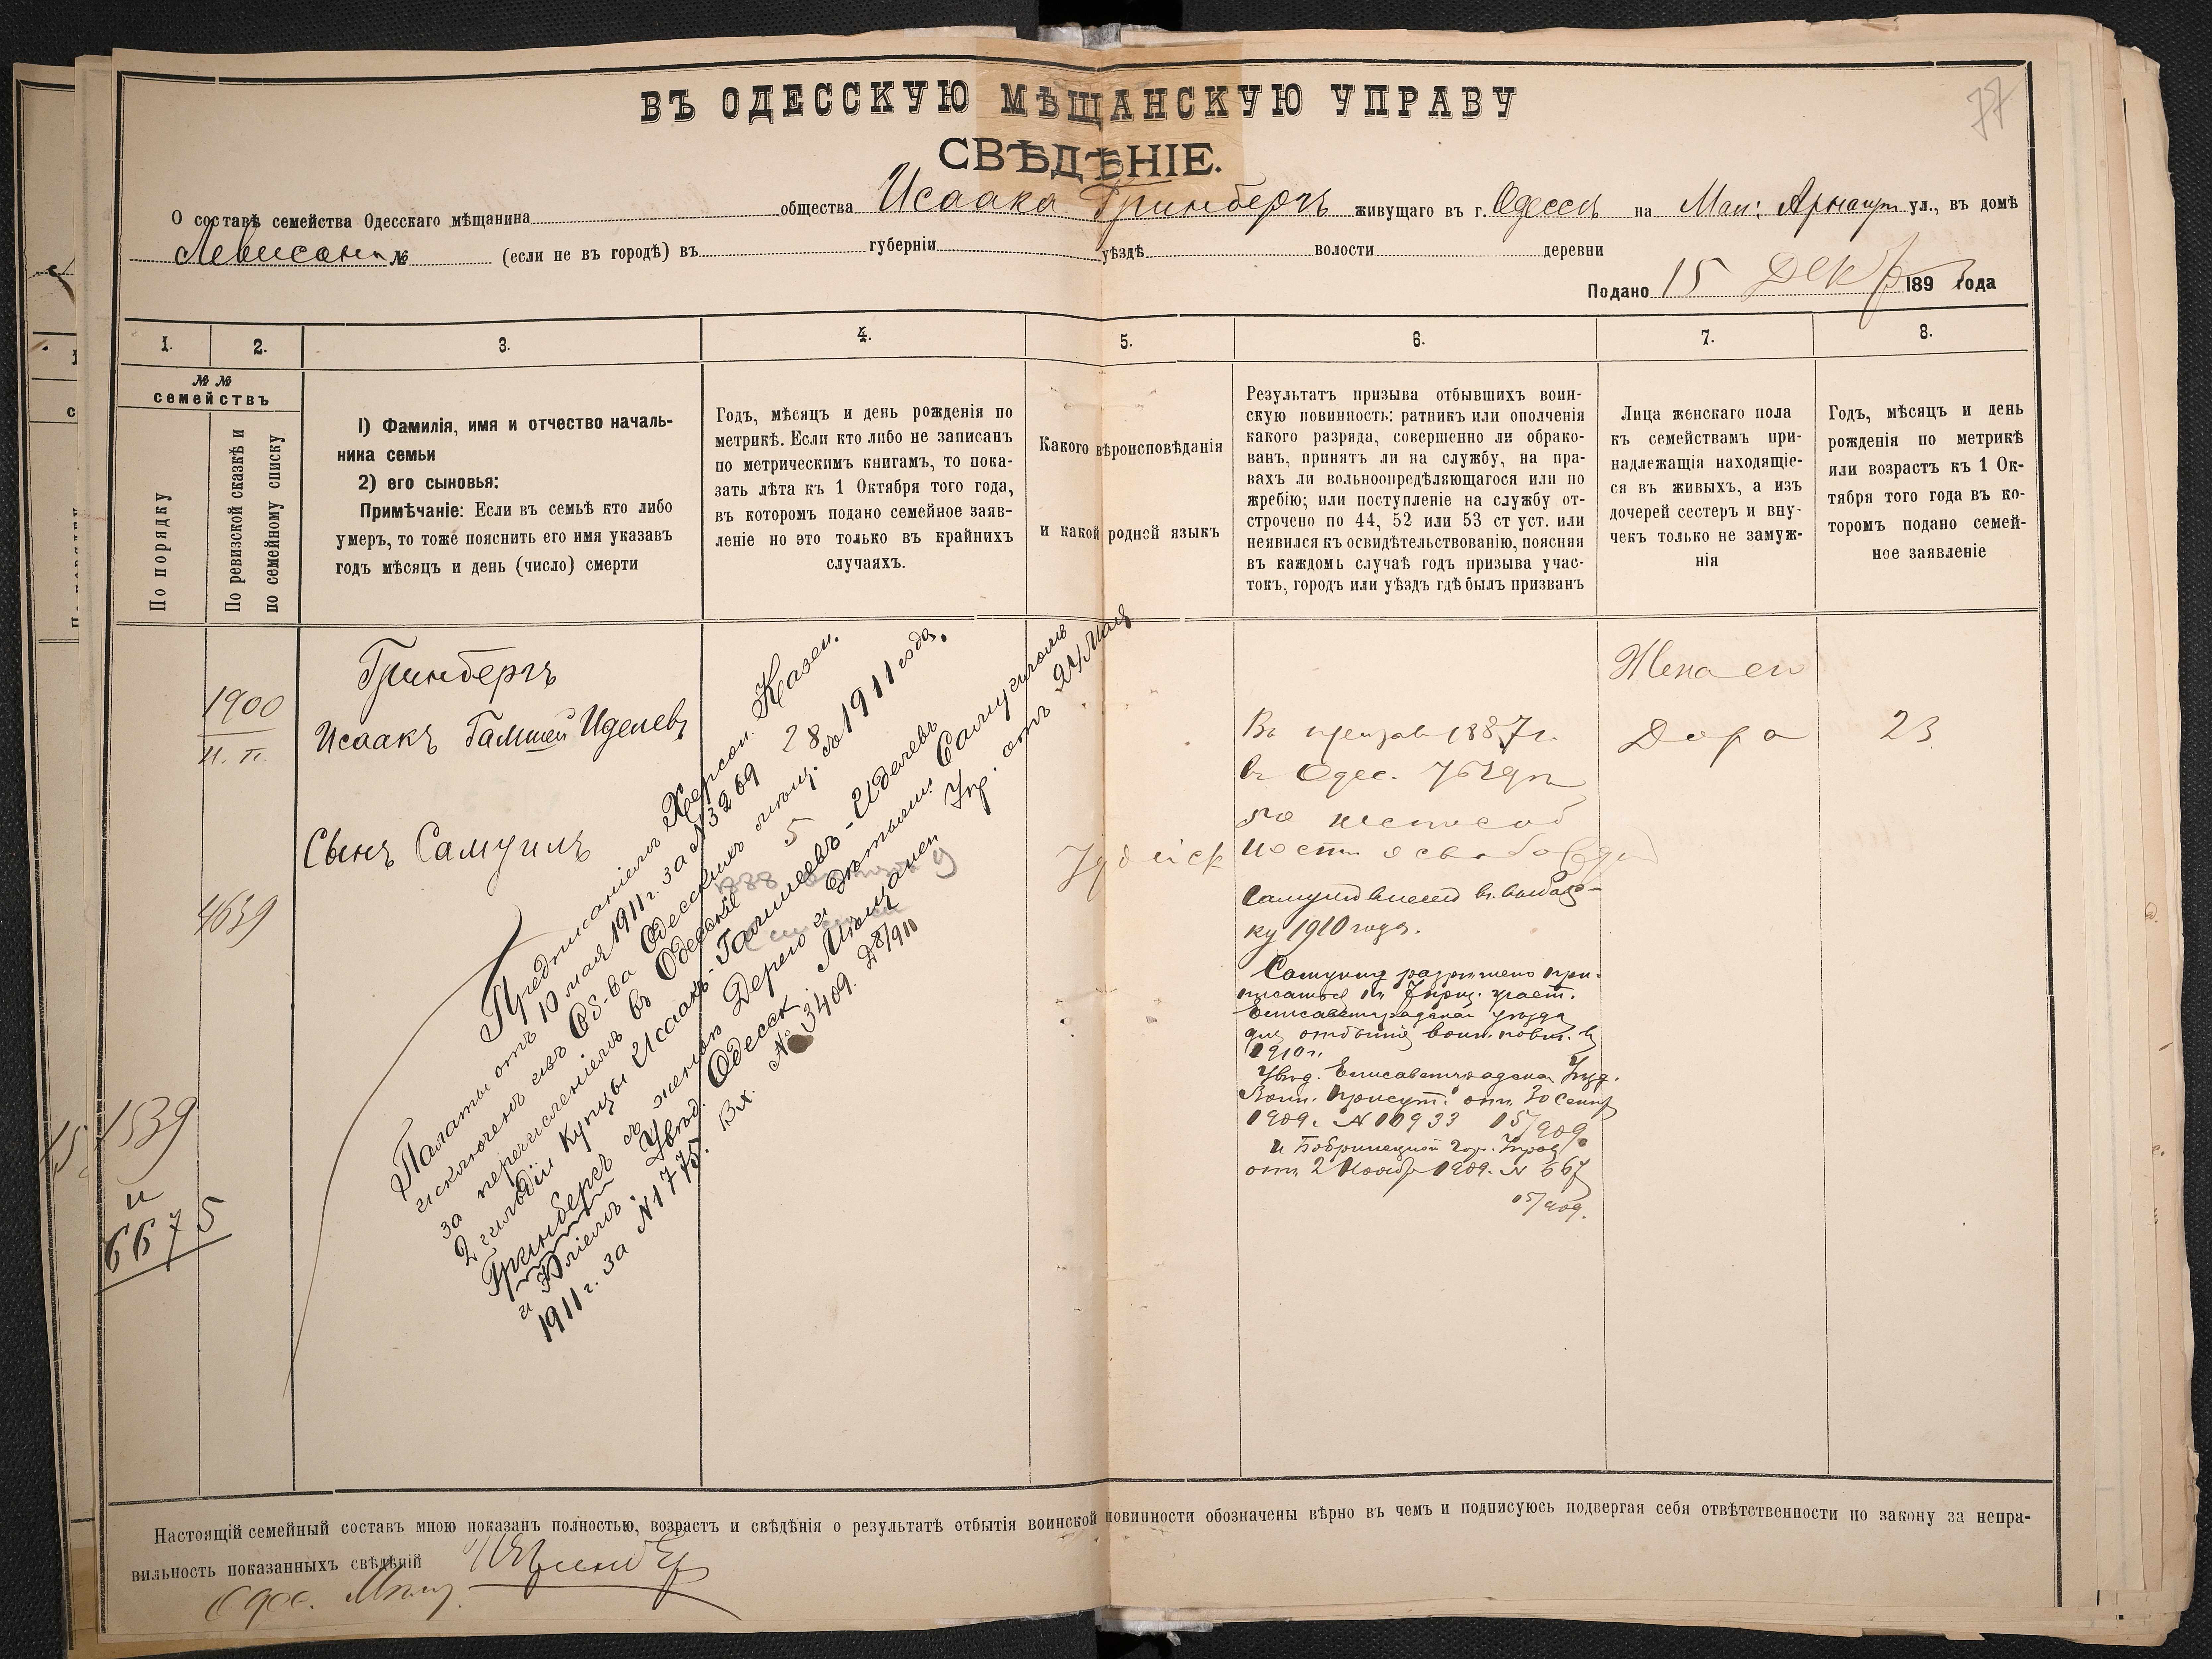 77
ВЪ ОДЕССКУЮ МѢЩАНСКУЮ УПРАВУ
СВѢДѢНІЕ.
О составѣ семейства Одесскаго мѣщанина общества Исаака Гринбергъ живущаго въ г. Одессѣ на Мал: Арнаут ул., въ домѣ
Левисона № (если не въ городѣ) въ губерніи уѣздѣ волости деревни
Подано 15 Декбр 189 года
1. 2. 3. 4. 5. 6. 7. 8.
№ №
семействъ
По порядку
По ревизской сказкѣ и
по семейному списку
1) Фамилія, имя и отчество началь-
ника семьи
2) его сыновья:
Примѣчаніе: Если въ семьѣ кто либо
умеръ, то тоже пояснить его имя указавъ
годъ мѣсяцъ и день (число) смерти
Годъ, мѣсяцъ и день рожденія по
метрикѣ. Если кто либо не записанъ
по метрическимъ книгамъ, то пока-
зать лѣта къ 1 Октября того года,
въ которомъ подано семейное заяв-
леніе но это только въ крайнихъ
случаяхъ.
Какого вѣроисповѣданія
и какой родной языкъ
Результатъ призыва отбывшихъ воин-
скую повинность: ратникъ или ополченія
какого разряда, совершенно ли обрако-
ванъ, принятъ ли на службу, на пра-
вахъ ли вольноопредѣляющагося или по
жребію; или поступленіе на службу от-
строчено по 44, 52 или 53 ст уст. или
неявился къ освидѣтельствованію, поясняя
въ каждомъ случаѣ годъ призыва учас-
токъ, городъ или уѣздъ гдѣ былъ призванъ
Лица женскаго пола
къ семействамъ при-
надлежащія находящіе-
ся въ живыхъ, а изъ
дочерей сестеръ и вну-
чекъ только не замуж-
нія
Годъ, мѣсяцъ и день
рожденія по метрикѣ
или возрастъ къ 1 Ок-
тября того года въ ко-
торомъ подано семей-
ное заявленіе
1900
н. п.
4639
1539
и
6675
Гринбергъ
Исаакъ Гамшей Иделевъ
Сынъ Самуилъ
Предписаніемъ Херсон. Казен.
Палаты отъ 10 мая 1911 г. за №3269 28
исключенъ изъ Об-ва Одесскихъ мѣщ. съ 1911 года,
за перечисленіемъ въ Одесскіе 5
2 гильдіи купцы Исаакъ-Гамшеевъ-Иделевъ
Гринбергъ съ женою Дерею и дѣтьми Самуиломъ
и Юліемъ. Увѣд. Одесск. Мѣщанск. Упр. отъ 24 Мая
1911 г. за №1775. Вх. № 3409. Д8/910
Іудейск
Въ призывъ 1887 г.
въ Одес. уѣздѣ
по неспособ
ности освобожд
Самуилъ внесенъ въ выбор-
ку 1910 года.
Самуилу разрѣшено при-
писаться къ 7 приз. участ.
Елисаветградскаго уѣзда
для отбытія воин. повин. въ
1910 г.
Увѣд. Елисаветградскаго Уѣзд.
Воин. Присут. отъ 30 Сент
1909 г. № 10933 15/909
и Бобринецкой Гор. Управ
отъ 2 Ноябр 1909. № 667
15/909.
Жена его
Дора
23
Настоящій семейный составъ мною показанъ полностью, возрастъ и свѣдѣнія о результатѣ отбытія воинской повинности обозначены вѣрно въ чемъ и подписуюсь подвергая себя отвѣтственности по закону за непра-
вильность показанныхъ свѣдѣній
Одес. Мѣщ.